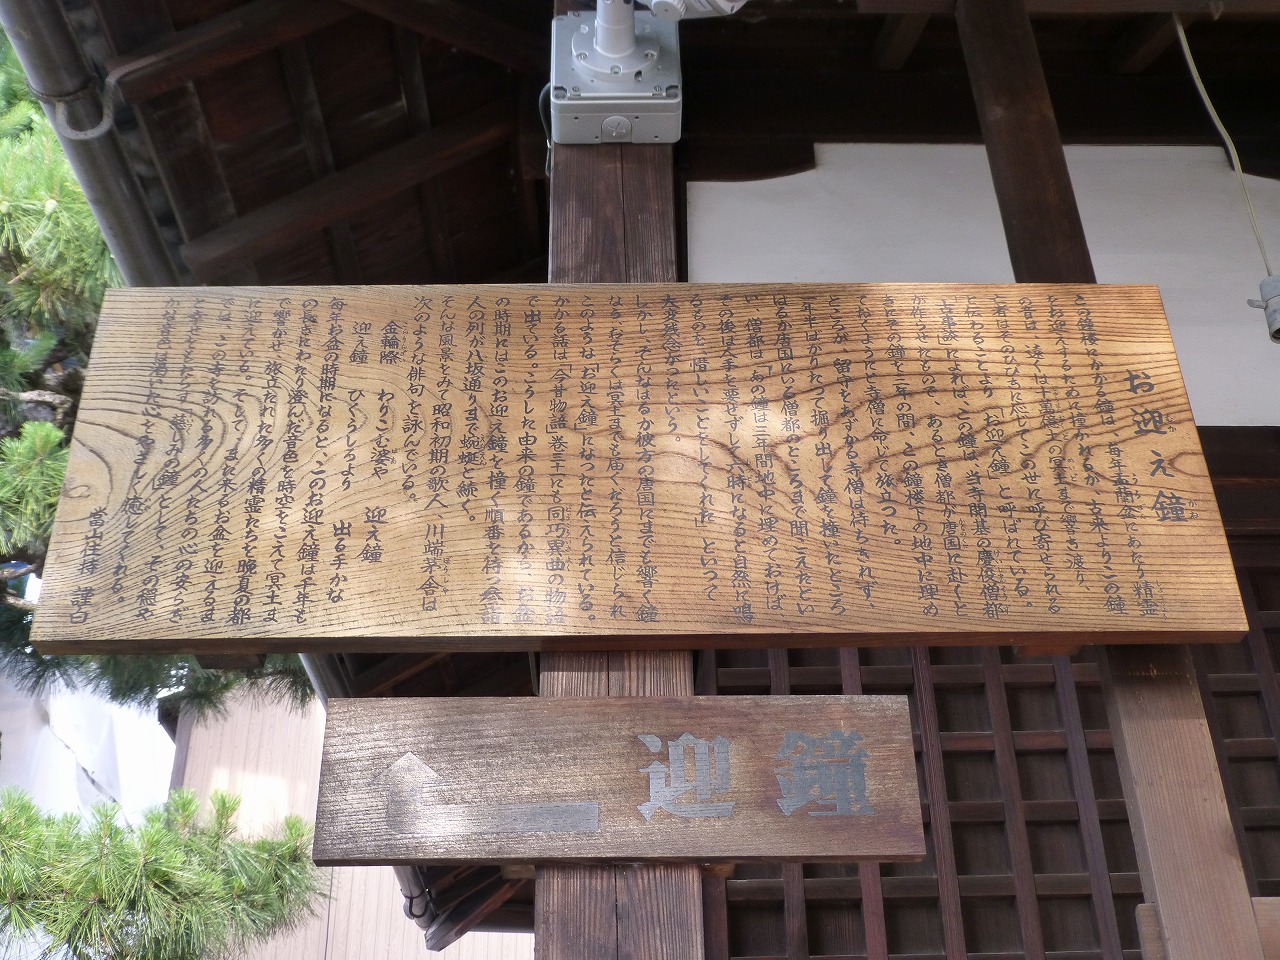 お迎え鐘
この鐘楼にかかる鐘は、毎年盂蘭盆にあたり精霊
をお迎えするために撞かれるが、古来よりこの鐘
の音は、遠くは十萬億土の冥土まで響き渡り、
亡者はそのひびきに応じてこの世に呼び寄せられる
と伝わることより「お迎え鐘」と呼ばれている。
「古事談」によれば、この鐘は、当寺開基の慶俊僧都
が作らせたもので、あるとき僧都が唐国に赴くと
きにこの鐘を三年の間、この鐘楼下の地中に埋め
ておくように寺僧に命じて旅立つた。
ところが、留守をあずかる寺僧は待ちきれず、
一年半ばかりたつて掘り出して鐘を撞いたところ
はるか唐国にいる僧都のところまで聞こえたとい
い、僧都は、「あの鐘は三年間地中に埋めておけば
その後は人手を要せずして六時になると自然に鳴
るものを、惜しいことをしてくれた」といつて
大変残念がつたという。
しかし、そんなはるか彼方の唐国にまでも響く鐘
なら、おそらくは冥土までも届くだろうと信じられ
このような「お迎え鐘」になつたと伝えられている。
かかる話は「今昔物語」巻三十にも同巧異曲の物語
で出ている。こうした由来の鐘であるから、お盆
の時期にはこのお迎え鐘を撞く順番を待つ参詣
人の列が八坂通りまで蜿蜒と続く。
そんな風景をみて昭和初期の歌人 川端茅舎は
次のような俳句を詠んでいる。
金輪際 わりこむ婆や 迎え鐘
迎え鐘 ひくうしろより 出る手かな
毎年お盆の時期になると、このお迎え鐘は千年も
の長きにわたり澄んだ音色を時空をこえて冥土ま
で響かせ、旅立たれた多くの精霊たちを晩夏の都
に迎えている。そして、また来るお盆を迎えるま
では、この寺を訪れる多くの人たちの心の安らぎ
と幸せをもたらす、慈しみの鐘として、その穏や
かな音色は渇いた心をうるおし癒してくれる。
當山住持 謹白
迎鐘